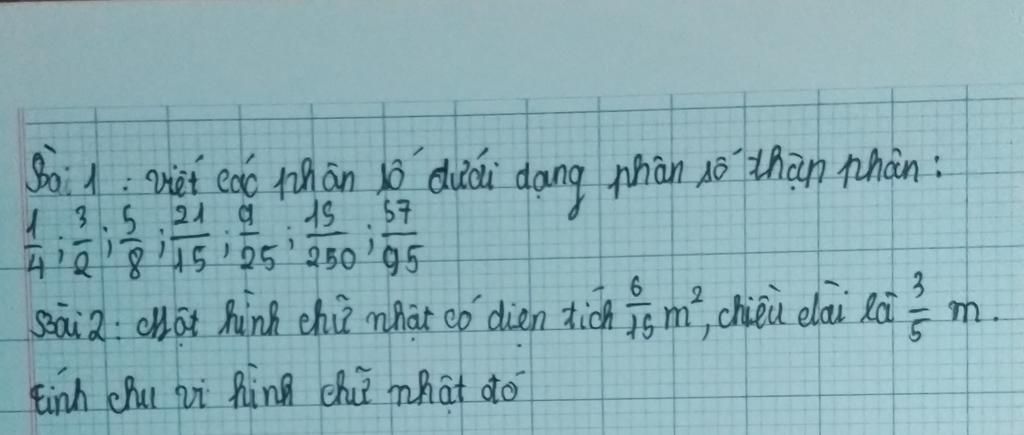 Bài 1 : viết các phân số dưới dạng phân số thập phân :
1/4 ; 3/2 ; 5/8 ; 21/15 ; 9/25 ; 15/250 ; 57/95
Bài 2 : Một hình chữ nhật có diện tích 6/15 m², chiều dài là 3/5 m.
tính chu vi hình chữ nhật đó